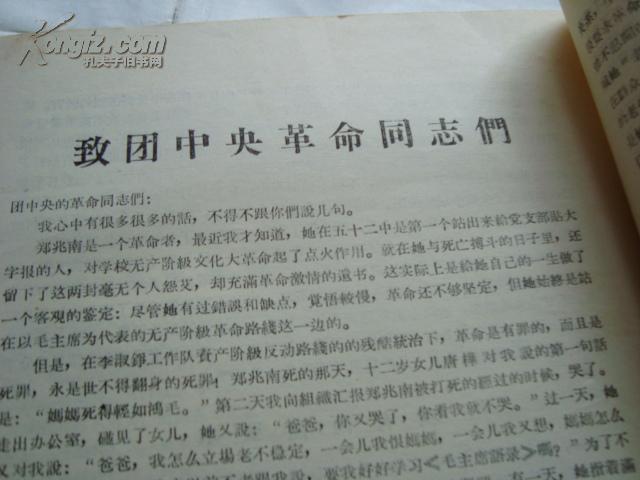 Kongfz.com
孔夫子旧书网
致团中央革命同志們
团中央的革命同志們：
我心中有很多很多的話，不得不跟你們說几句。
郑兆南是一个革命者，最近我才知道，她在五十二中是第一个站出来給党支部貼大
字报的人，对学校无产阶級文化大革命起了点火作用。就在她与死亡搏斗的日子里，还
留下了这两封毫无个人怨艾，却充滿革命激情的遺书。这实际上是給她自己的一生做了
一个客观的鉴定：尽管她有过錯誤和缺点，覚悟較慢，革命还不够坚定，但她始終是站
在以毛主席为代表的无产阶級革命路綫这一边的。
但是，在李淑錚工作队資产阶級反动路綫的的残酷統治下，革命是有罪的，而且是
死罪，永是世不得翻身的死罪；郑兆南死的那天，十二岁女儿唐樺对我說的第一句話
是：“媽媽死得輕如鴻毛。”第二天我向組織汇报郑兆南被打死的經过的时候，哭了。
走出办公室，碰见了女儿，她又說：“爸爸，你又哭了，你看我就不哭。”过一天，她
又对我說：“爸爸，我怎么立場老不稳定，一会儿我恨媽媽，一会儿我又想，媽媽怎么
要好好学习《毛主席語录》嗎？”为了不
有一天，她揹着滿